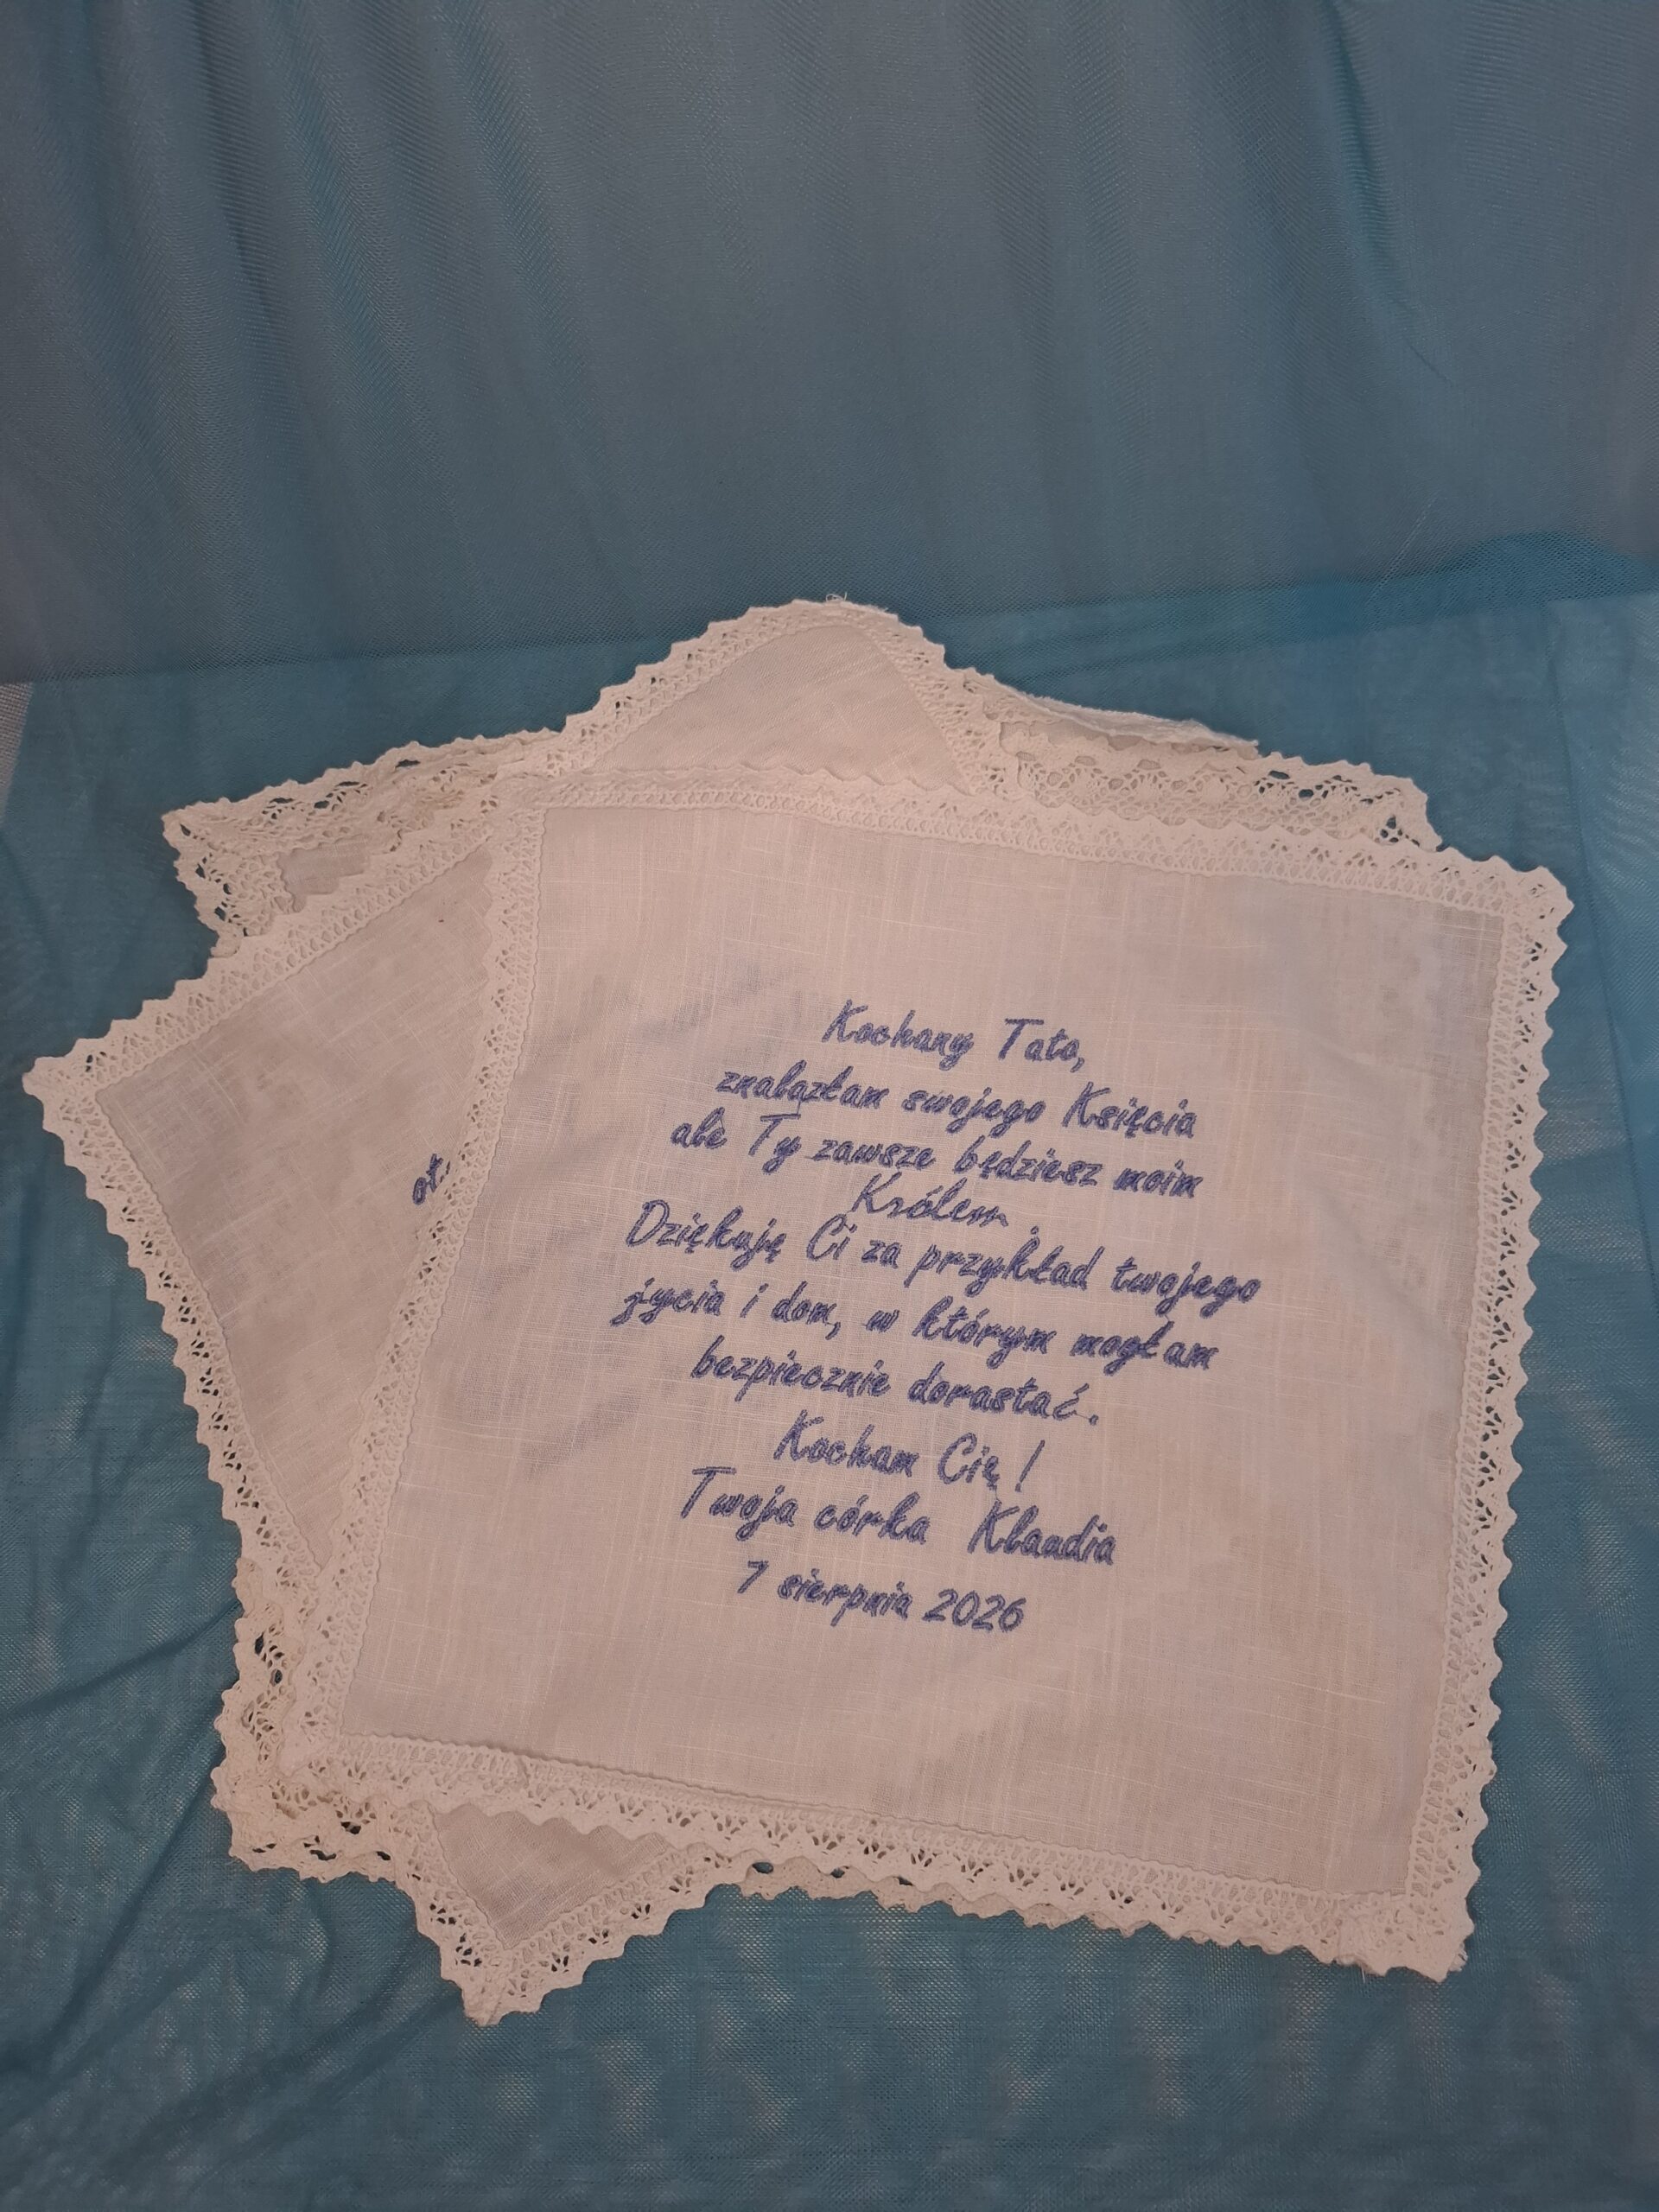 Kochany Tato,
znalazłam swojego Księcia
ale Ty zawsze będziesz moim
Królem.
Dziękuję Ci za przykład twojego
życia i dom, w którym mogłam
bezpiecznie dorastać.
Kocham Cię!
Twoja córka Klaudia
7 sierpnia 2026